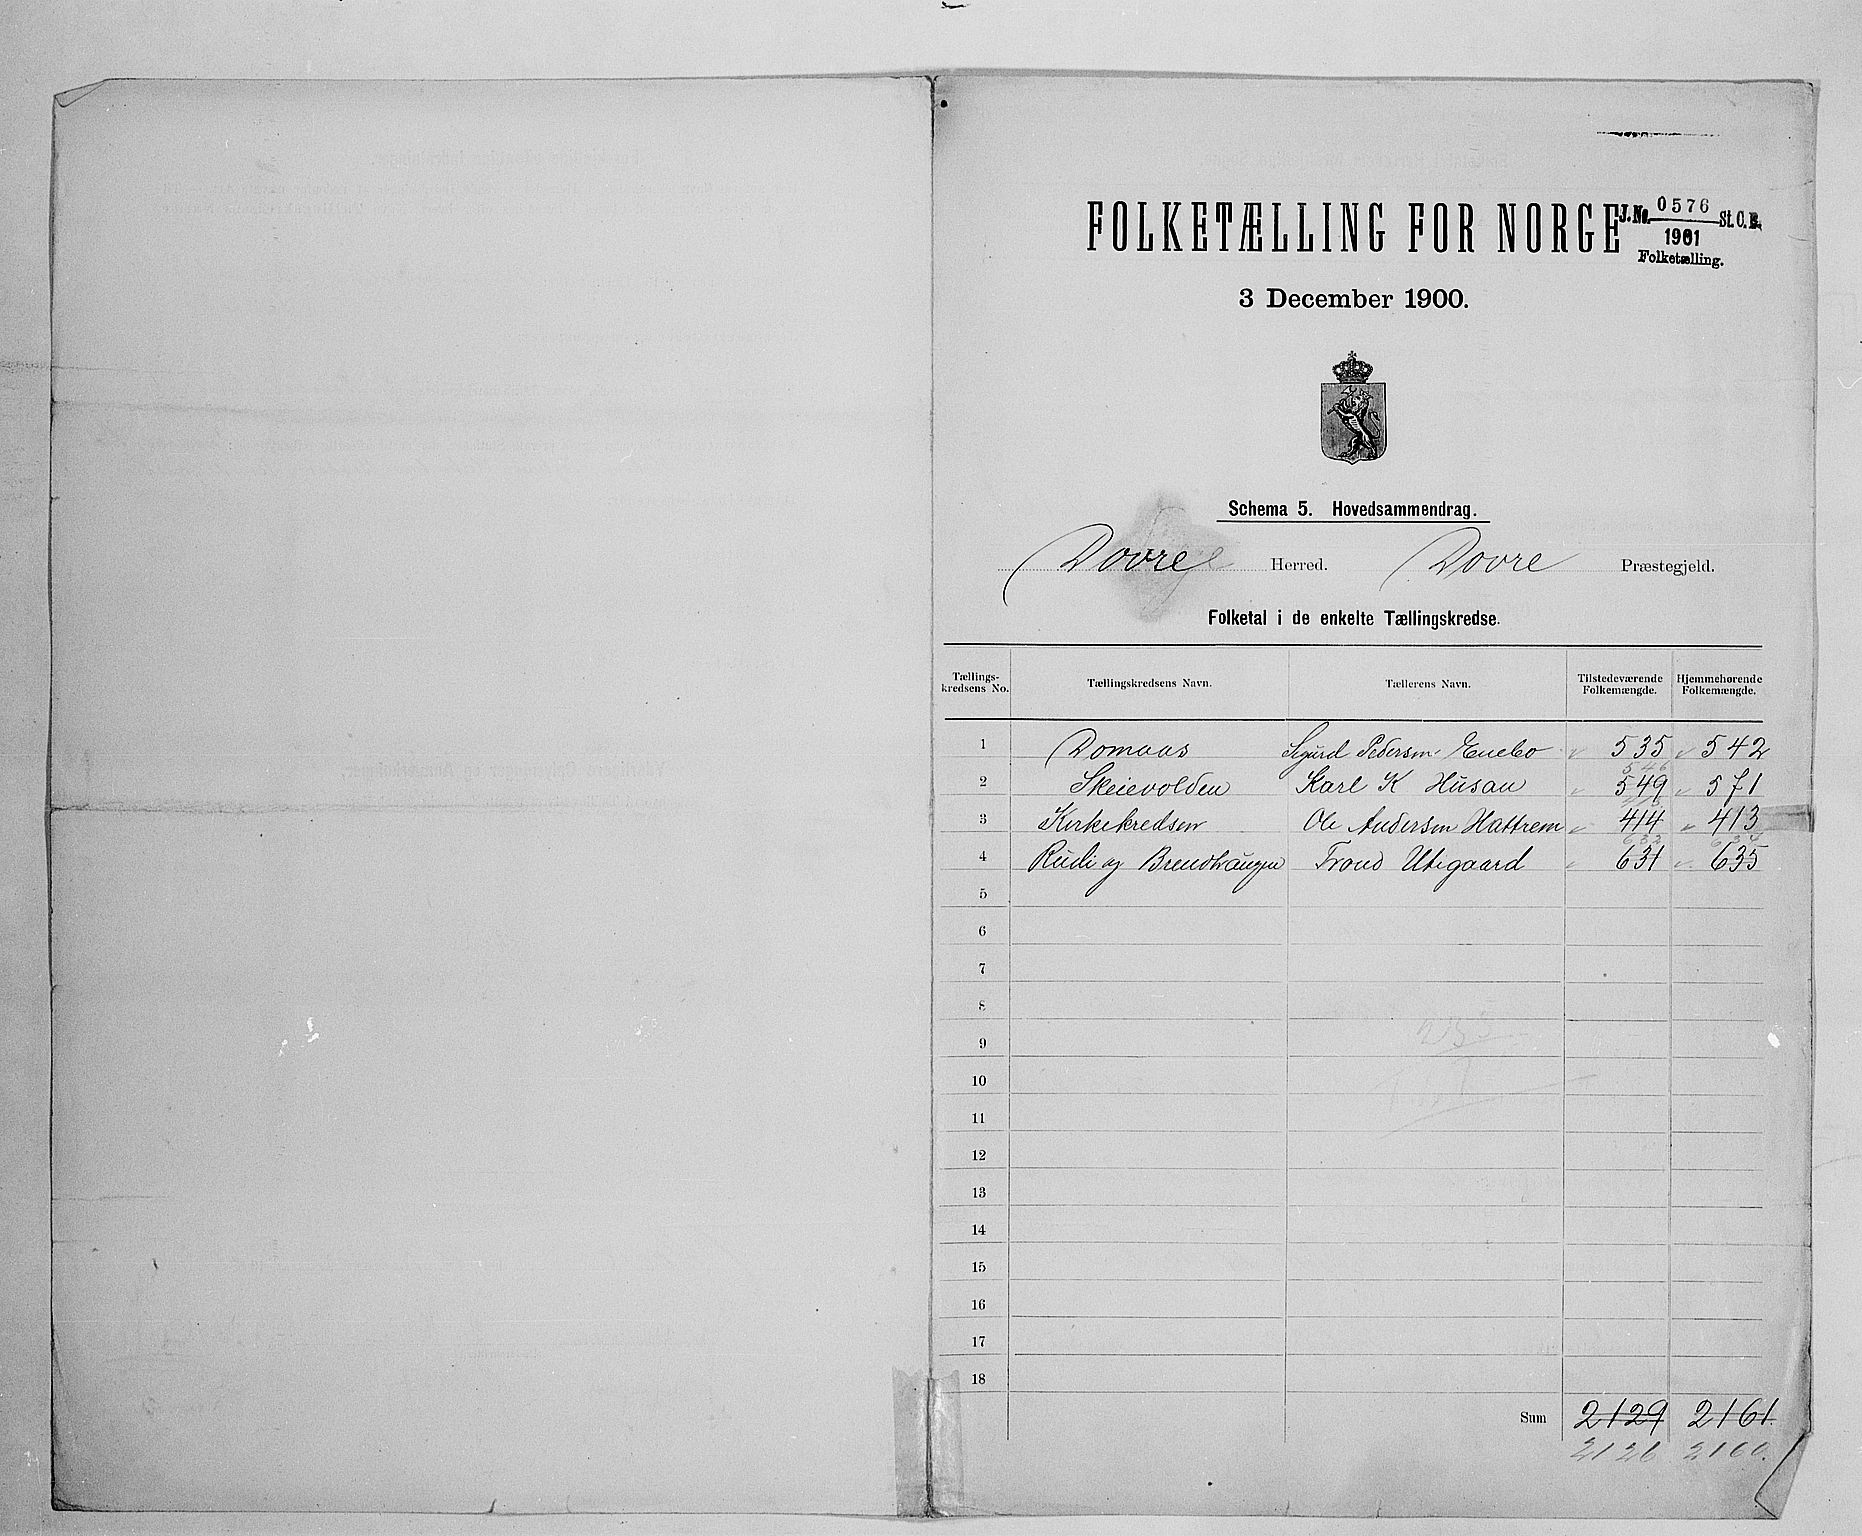 FOLKETÆLLING FOR NORGE
J. No. 0576 St. C. B.
1901
Folketælling.
3 December 1900.
Schema 5. Hovedsammendrag.
Dovre Herred. Dovre Præstegjeld.
Folketal i de enkelte Tællingskredse.
Tællings-kredsens No. Tællingskredsens Navn. Tællerens Navn. Tilstedeværende Folkemængde. Hjemmehørende Folkemængde.
1 Domaas Sigurd Pedersen Enebo 535 542
546
2 Skeievolden Karl K Husan 549 571
3 Kirkekredsen Ole Andersen Hattrem 414 413
632
4 Rudi og Brendhaugen Trond Utegaard 631 635
5
6
7
8
9
10
11
12
13
14
15
16
17
18
Sum 2129 2161
2126 2160.